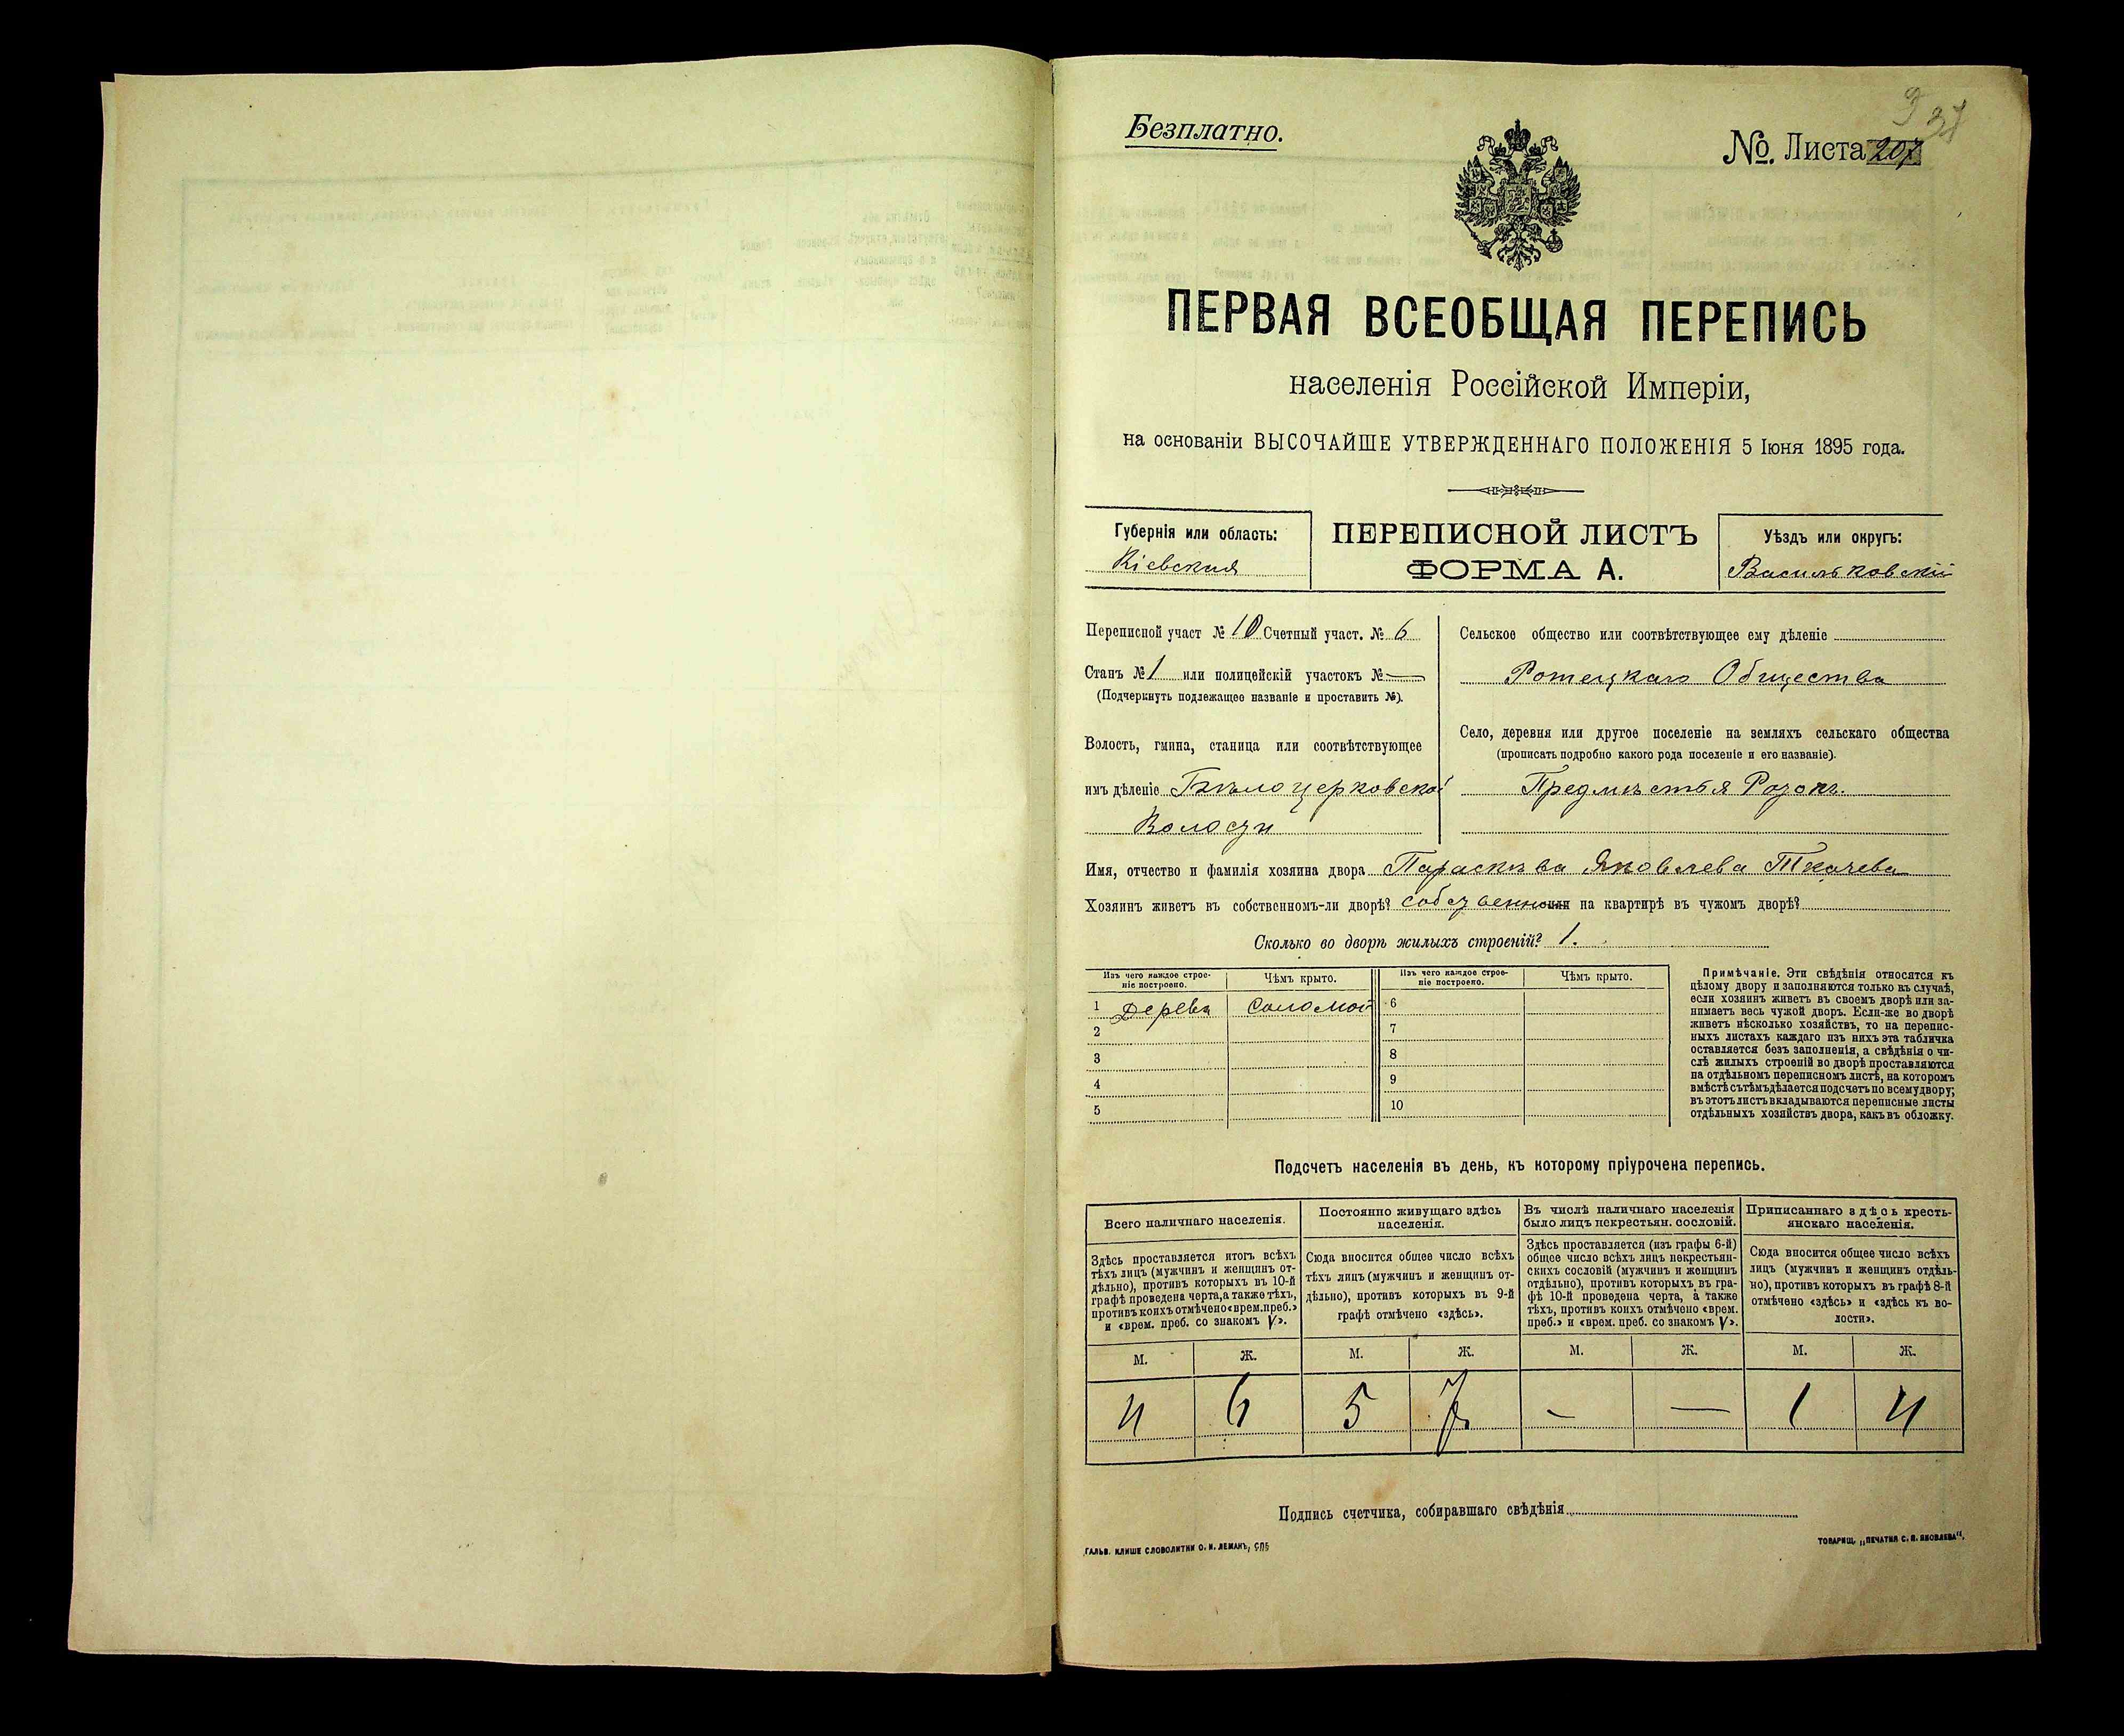 Безплатно.
No. Листа 207
ПЕРВАЯ ВСЕОБЩАЯ ПЕРЕПИСЬ
населенія Россійской Имперіи,
на основаніи ВЫСОЧАЙШЕ УТВЕРЖДЕННАГО ПОЛОЖЕНІЯ 5 Іюня 1895 года.
Губернія или область:
Кіевская
ПЕРЕПИСНОЙ ЛИСТЪ
ФОРМА А.
Уѣздъ или округъ:
Васильковскій
Переписной участ № 10 Счетный участ. № 6
Станъ № 1 или полицейскій участокъ № —
(Подчеркнуть подлежащее названіе и проставить №).
Волость, гмина, станица или соотвѣтствующее
имъ дѣленіе Бѣлоцерковской
Волости
Сельское общество или соотвѣтствующее ему дѣленіе
Общества
Село, деревня или другое поселеніе на земляхъ сельскаго общества
(прописать подробно какого рода поселеніе и его названіе).
Предмѣстья
Имя, отчество и фамилія хозяина двора Параскѣва Яковлева Ткачева
Хозяинъ живетъ въ собственномъ-ли дворѣ? собственн или на квартирѣ въ чужомъ дворѣ?
Сколько во дворѣ жилыхъ строеній? 1.
Изъ чего каждое строе-
ніе построено.
Чѣмъ крыто.
Изъ чего каждое строе-
ніе построено.
Чѣмъ крыто.
1 Дерева Соломой 6
2 7
3 8
4 9
5 10
Примѣчаніе. Эти свѣдѣнія относятся къ
цѣлому двору и заполняются только въ случаѣ,
если хозяинъ живетъ въ своемъ дворѣ или за-
нимаетъ весь чужой дворъ. Если-же во дворѣ
живетъ нѣсколько хозяйствъ, то на перепис-
ныхъ листахъ каждаго изъ нихъ эта табличка
оставляется безъ заполненія, а свѣдѣнія о чи-
слѣ жилыхъ строеній во дворѣ проставляются
на отдѣльномъ переписномъ листѣ, на которомъ
вмѣстѣ съ тѣмъ дѣлается подсчетъ по всему двору;
въ этотъ листъ вкладываются переписные листы
отдѣльныхъ хозяйствъ двора, какъ въ обложку.
Подсчетъ населенія въ день, къ которому пріурочена перепись.
Всего наличнаго населенія.
Здѣсь проставляется итогъ всѣхъ
тѣхъ лицъ (мужчинъ и женщинъ от-
дѣльно), противъ которыхъ въ 10-й
графѣ проведена черта, а также тѣхъ,
противъ коихъ отмѣчено «врем. преб.»
и «врем. преб. со знакомъ V».
Постоянно живущаго здѣсь
населенія.
Сюда вносится общее число всѣхъ
тѣхъ лицъ (мужчинъ и женщинъ от-
дѣльно), противъ которыхъ въ 9-й
графѣ отмѣчено «здѣсь».
Въ числѣ наличнаго населенія
было лицъ некрестьян. сословій.
Здѣсь проставляется (изъ графы 6-й)
общее число всѣхъ лицъ некрестьян-
скихъ сословій (мужчинъ и женщинъ
отдѣльно), противъ которыхъ въ гра-
фѣ 10-й проведена черта, а также
тѣхъ, противъ коихъ отмѣчено «врем.
преб.» и «врем. преб. со знакомъ V».
Приписаннаго здѣсь кресть-
янскаго населенія.
Сюда вносится общее число всѣхъ
лицъ (мужчинъ и женщинъ отдѣль-
но), противъ которыхъ въ графѣ 8-й
отмѣчено «здѣсь» и «здѣсь къ во-
лости».
М. Ж. М. Ж. М. Ж. М. Ж.
4 6 5 7 — — 1 4
Подпись счетчика, собиравшаго свѣдѣнія
ГАЛЬВ. КЛИШЕ СЛОВОЛИТНИ О. И. ЛЕМАНЪ, СПБ
ТОВАРИЩ. „ПЕЧАТНЯ С. П. ЯКОВЛЕВА".